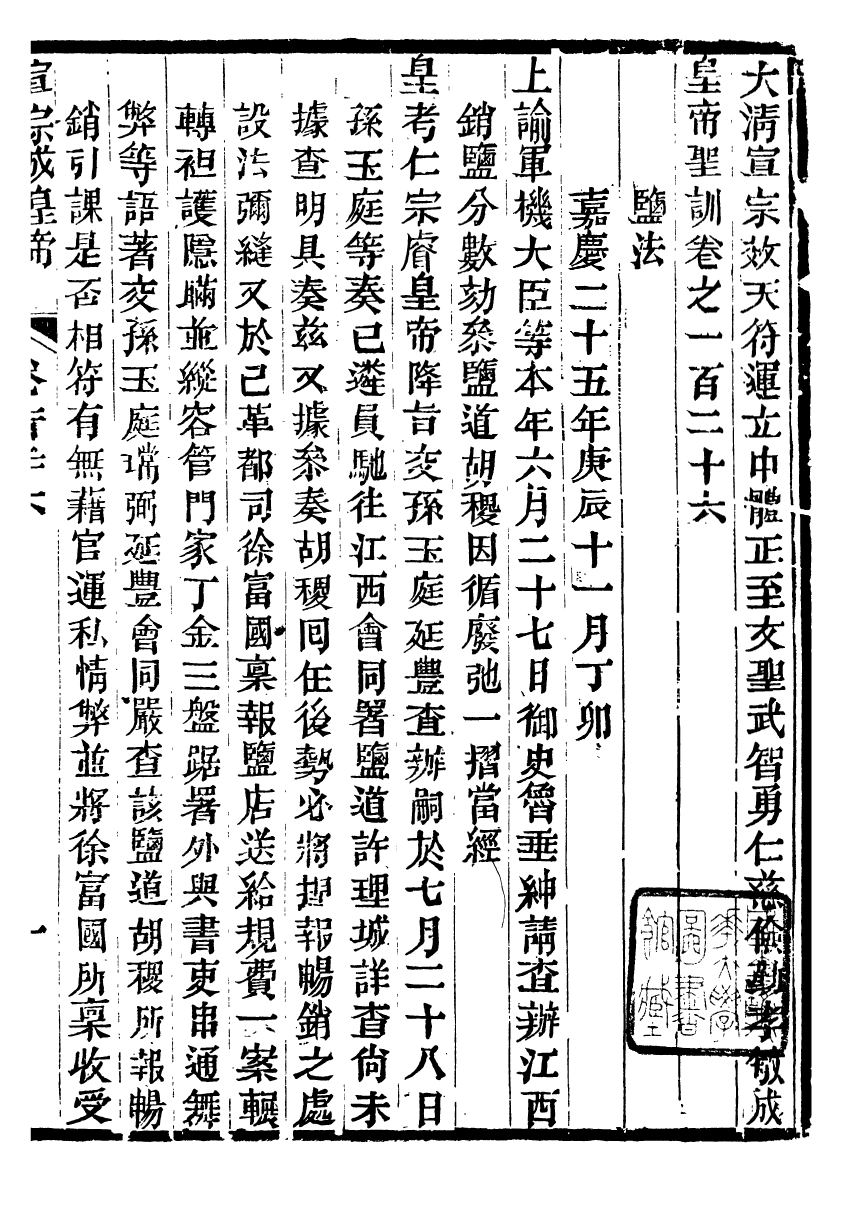 大清宣宗效天符運立中體正至文聖武智勇仁慈儉勤孝敏成
皇帝聖訓卷之一百二十六
鹽法
嘉慶二十五年庚辰十一月丁卯
上諭軍機大臣等本年六月二十七日御史魯垂紳請查辦江西
銷鹽分數劾叅鹽道胡稷因循廢弛一摺當經
皇考仁宗睿皇帝降旨交孫玉庭延豐查辦嗣於七月二十八日
孫玉庭等奏已遴員馳往江西會同署鹽道許理城詳查尙未
據查明具奏兹又據叅奏胡稷囘任後勢必將捏報暢銷之處
設法彌縫又於已革都司徐富國稟報鹽店送給規費一案輾
轉袒護隱瞞並縱容管門家丁金三盤踞署外與書吏串通舞
弊等語著交孫玉庭瑺弼延豐會同嚴查該鹽道胡稷所報暢
銷引課是否相符有無藉官運私情弊並將徐富國所稟收受
宣宗成皇帝
一
大學
圖書
館藏